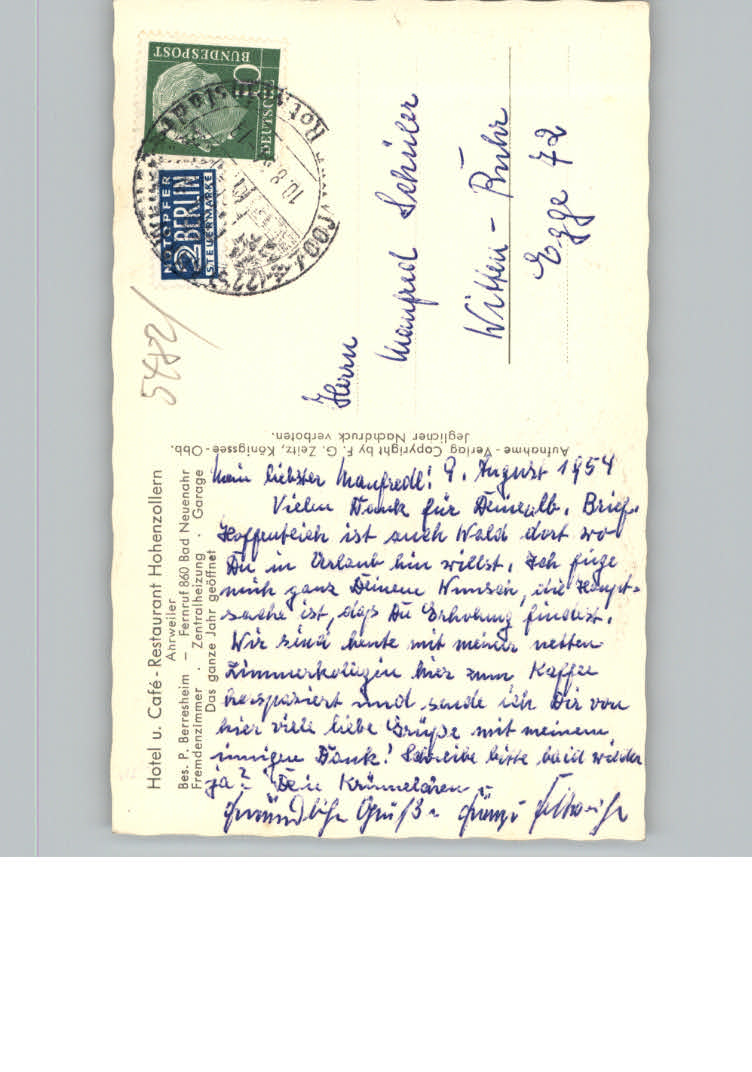 Hotel u. Café - Restaurant Hohenzollern
Ahrweiler
Bes. P. Berresheim — Fernruf 860 Bad Neuenahr
Fremdenzimmer . Zentralheizung . Garage
Das ganze Jahr geöffnet
Mein liebster Manfredl! 9. August 1954
Vielen Dank für Deine lb. Brief.
Hoffentlich ist auch Wald dort wo
Du in Urlaub hin willst. Ich füge
mich ganz Deinem Wunsch, die Haupt-
sache ist, daß Du Erholung findest.
Wir sind heute mit meiner netten
Zimmerkollegin hier zum Kaffee
herspaziert und sende ich Dir von
hier viele liebe Grüße mit meinem
innigen Dank! Schreibe bitte bald wieder
ja? Dein
Freundliche Grüße
Aufnahme - Verlag Copyright by F. G. Zeitz, Königssee - Obb.
Jeglicher Nachdruck verboten.
BUNDESPOST
DEUTSCHE
NOTOPFER
2 BERLIN
STEUERMARKE
10.8.
5482/
Herrn
Manfred Schüler
Witten - Ruhr
Egge 72